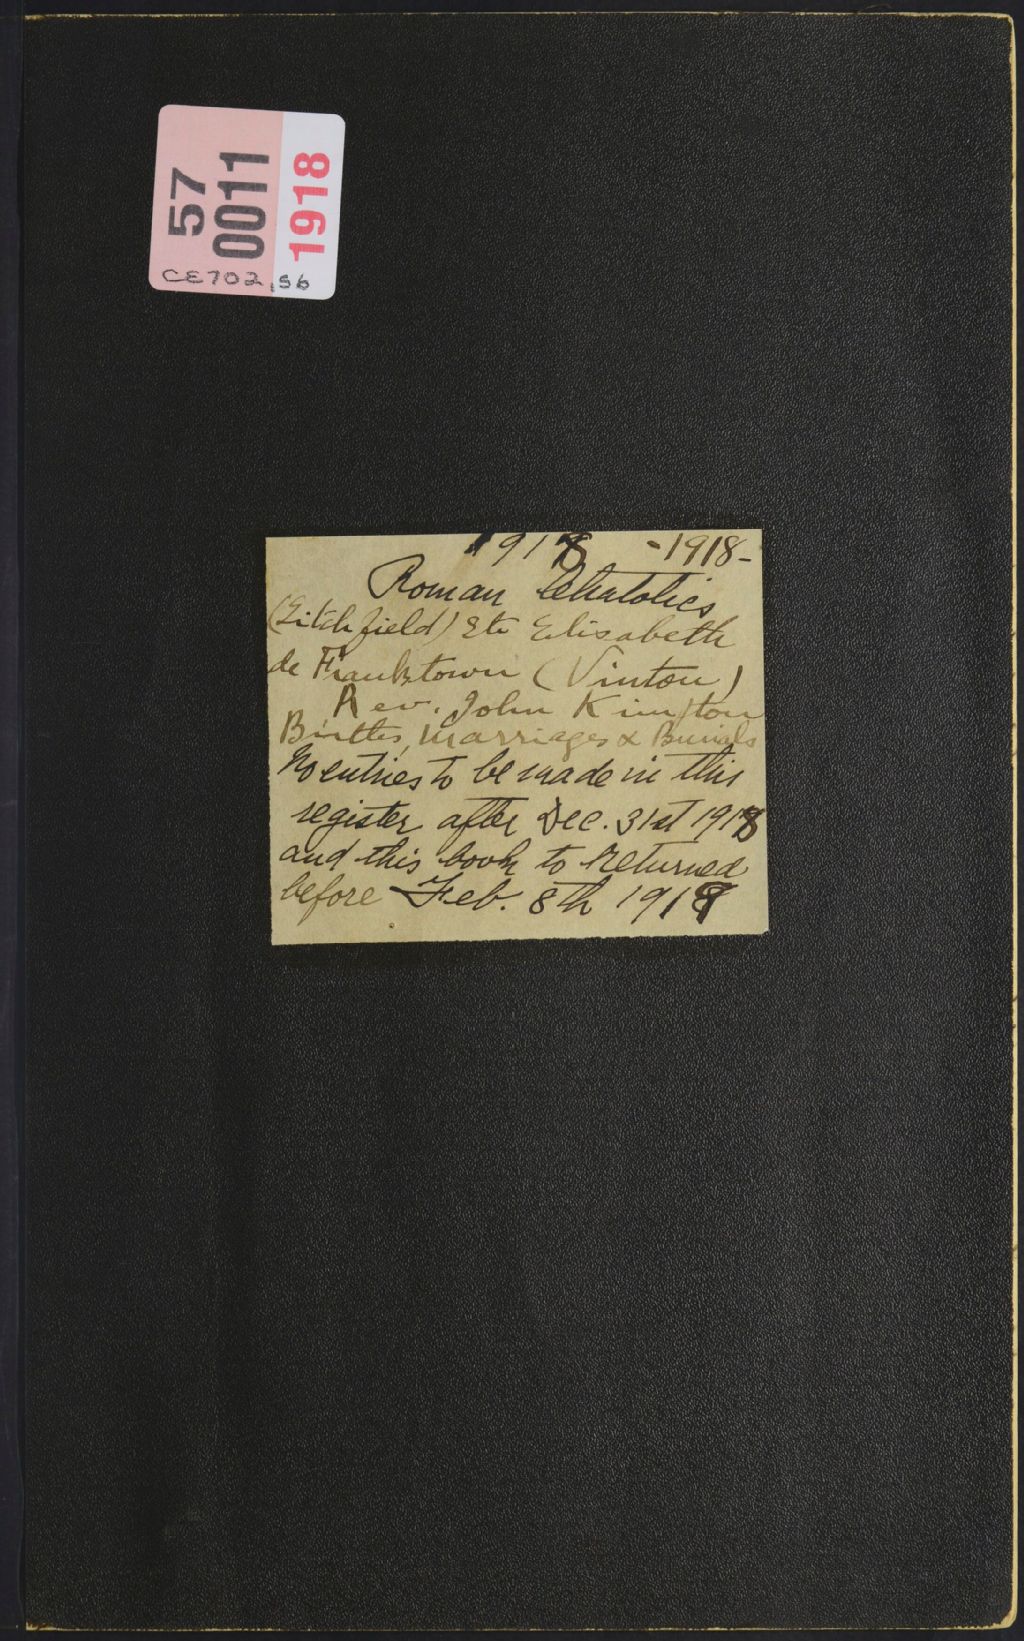 57
0011
1918
CE702,56
1918 -1918-
Roman Chatolics
(Litchfield) Ste Elisabeth
de Franktown (Vinton)
Rev. John Kimpton
Births, Marriages & Burials
No entries to be made in this
register after Dec. 31st 1918
and this book to returned
before Feb. 8th 1919